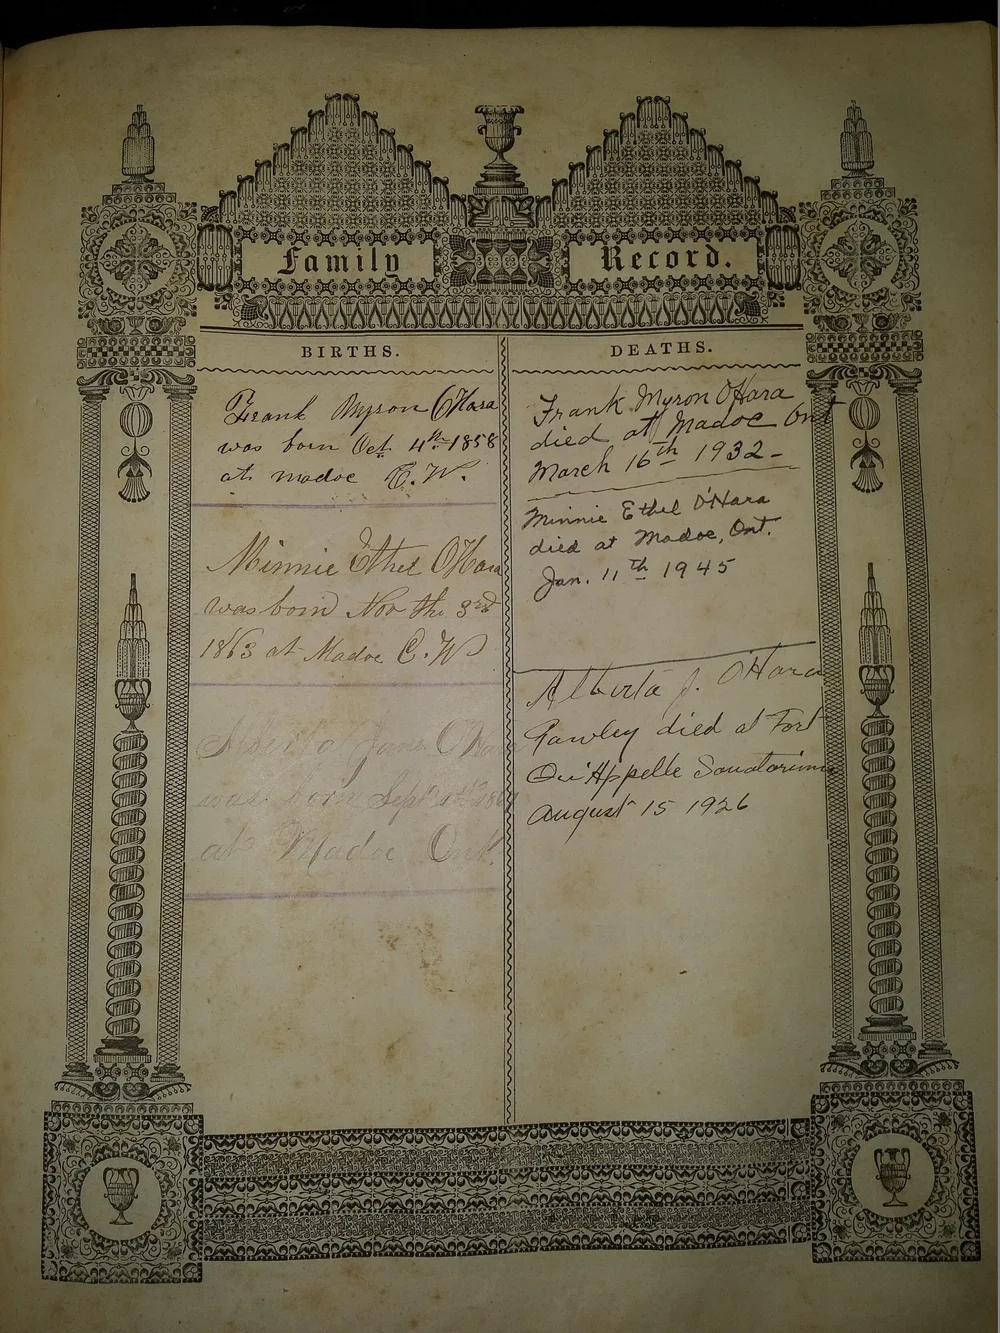 Family Record.
BIRTHS.
Frank Myron O'Hara
was born Oct. 4th 1858
at madoc C.W.
Minnie Ethel O'Hara
was born Nov the 3rd
1863 at Madoc C.W
Alberta Jane O'Hara
was born Sept
at Madoc Ont.
DEATHS.
Frank Myron O'Hara
died at Madoc Ont
March 16th 1932-
Minnie Ethel O'Hara
died at Madoc, Ont.
Jan. 11th 1945
Alberta J. O'Hara
died at Fort
Qu'Appelle Sanatorium
August 15 1926